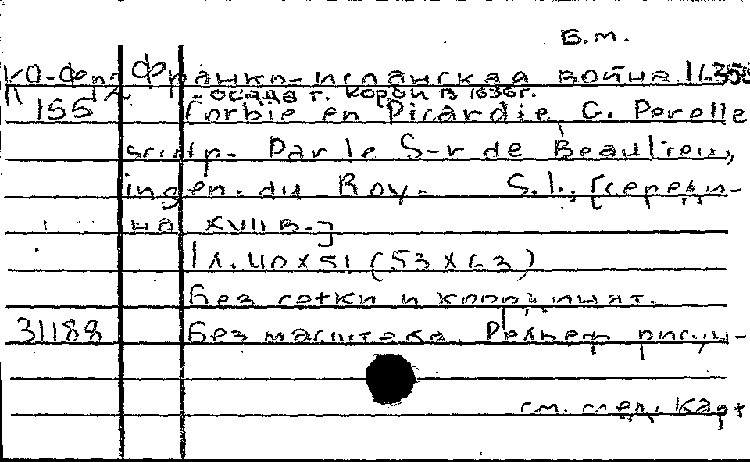 Б.м.
Франко-испанская война 1635
осада г. Корби в 1636г.
155 Corbie en Picardie. G. Perelle
sculp. Par le S-r de Beaulieu,
ingén. du Roy. S.l., [середи-
на XVII в.]
1 л. 40x51 (53x63)
Без сетки и координат.
31188 Без масштаба. Рельеф рисун-
см. след. карт